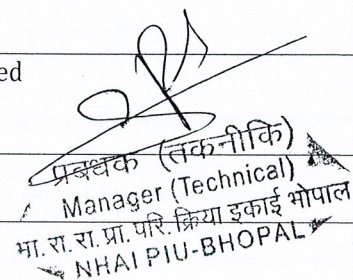 ed
प्रबंधक (तकनीकि)
Manager (Technical)
भा. रा. रा. प्रा. परि. क्रिया इकाई भोपाल
NHAI PIU-BHOPAL